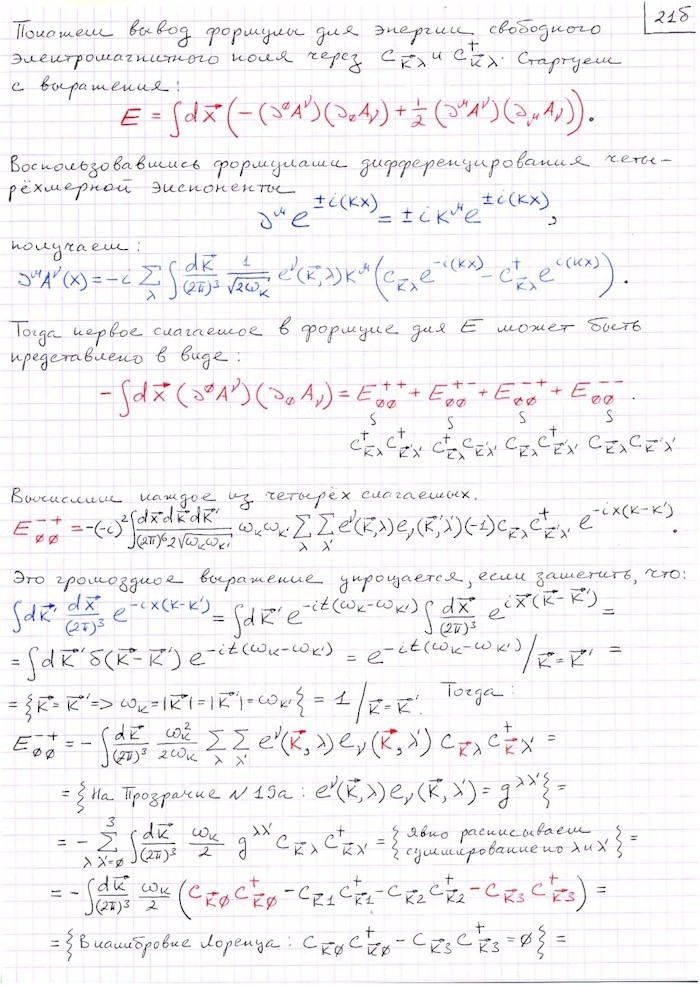 21б
Покажем вывод формулы для энергии свободного
электромагнитного поля через c_{k⃗λ} и c⁺_{k⃗λ}. Стартуем
с выражения:
E = ∫dx⃗ (-(∂^0 A^ν)(∂_0 A_ν) + 1/2 (∂^μ A^ν)(∂_μ A_ν)).
Воспользовавшись формулами дифференцирования четы-
рёхмерной экспоненты
∂^μ e^{±i(kx)} = ±i k^μ e^{±i(kx)},
получаем:
∂^μ A^ν(x) = -i ∑_λ ∫ dk⃗/(2π)³ 1/√(2ω_k) e^ν(k⃗,λ) k^μ (c_{k⃗λ} e^{-i(kx)} - c⁺_{k⃗λ} e^{i(kx)}).
Тогда первое слагаемое в формуле для E может быть
представлено в виде:
-∫dx⃗ (∂^0 A^ν)(∂_0 A_ν) = E_{00}^{++} + E_{00}^{+-} + E_{00}^{-+} + E_{00}^{--}.
c⁺_{k⃗λ} c⁺_{k⃗'λ'} c⁺_{k⃗λ} c_{k⃗'λ'} c_{k⃗λ} c⁺_{k⃗'λ'} c_{k⃗λ} c_{k⃗'λ'}
Вычислим каждое из четырёх слагаемых.
E_{00}^{-+} = -(-i)² ∫ dx⃗dk⃗dk⃗'/((2π)⁶ 2√(ω_k ω_{k'})) ω_k ω_{k'} ∑_λ ∑_{λ'} e^ν(k⃗,λ) e_ν(k⃗',λ')(-1) c_{k⃗λ} c⁺_{k⃗'λ'} e^{-ix(k-k')}.
Это громоздкое выражение упрощается, если заметить, что:
∫dk⃗' dx⃗/(2π)³ e^{-ix(k-k')} = ∫dk⃗' e^{-it(ω_k-ω_{k'})} ∫ dx⃗/(2π)³ e^{ix⃗(k⃗-k⃗')} =
= ∫dk⃗' δ(k⃗-k⃗') e^{-it(ω_k-ω_{k'})} = e^{-it(ω_k-ω_{k'})} /_{k⃗=k⃗'} =
= {k⃗=k⃗' => ω_k=|k⃗|=|k⃗'|=ω_{k'}} = 1 /_{k⃗=k⃗'}. Тогда:
E_{00}^{-+} = -∫ dk⃗/(2π)³ ω_k²/(2ω_k) ∑_λ ∑_{λ'} e^ν(k⃗,λ) e_ν(k⃗,λ') c_{k⃗λ} c⁺_{k⃗λ'} =
= {На Прозрачке N 19а: e^ν(k⃗,λ) e_ν(k⃗,λ') = g^{λλ'}} =
= -∑_{λλ'=0}^{3} ∫ dk⃗/(2π)³ ω_k/2 g^{λλ'} c_{k⃗λ} c⁺_{k⃗λ'} = {Явно расписываем суммирование по λ и λ'} =
= -∫ dk⃗/(2π)³ ω_k/2 (c_{k⃗0} c⁺_{k⃗0} - c_{k⃗1} c⁺_{k⃗1} - c_{k⃗2} c⁺_{k⃗2} - c_{k⃗3} c⁺_{k⃗3}) =
= {В калибровке Лоренца: c_{k⃗0} c⁺_{k⃗0} - c_{k⃗3} c⁺_{k⃗3} = 0} =